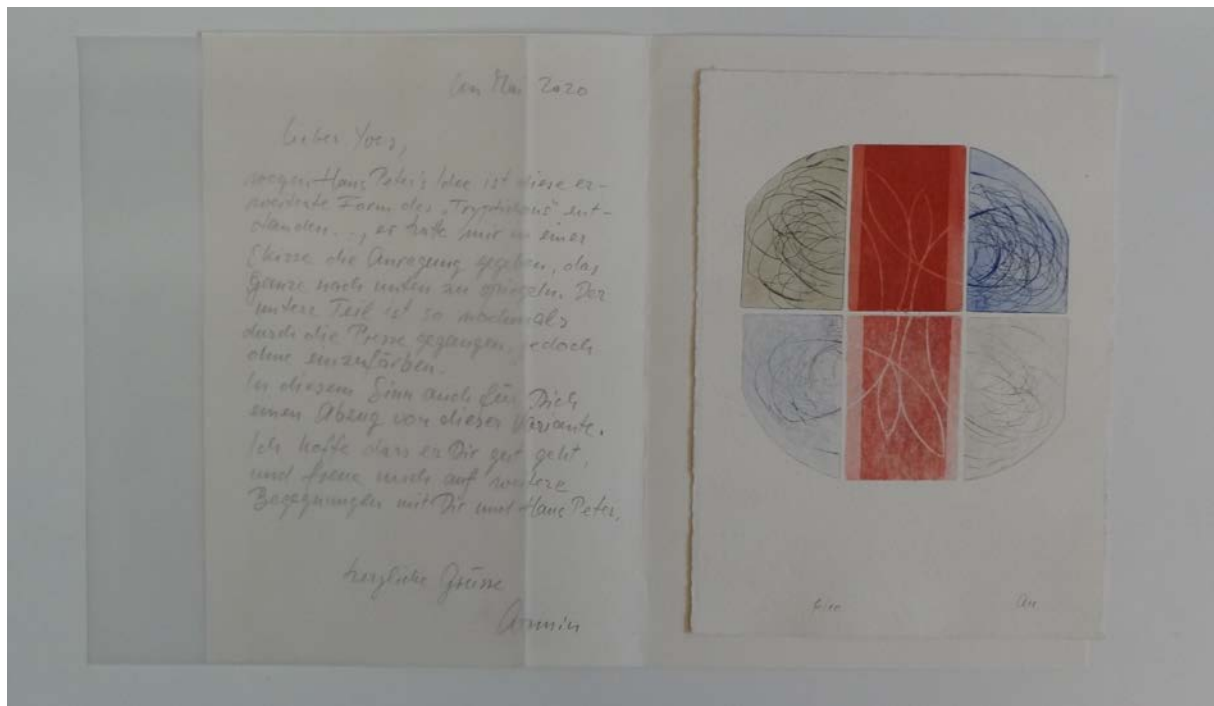 im Mai 2020
Lieber Yves,
wegen Hans Peter's Idee ist diese er-
weiterte Form des „Tryptichons" ent-
standen..., er hatte mir in einer
Skizze die Anregung gegeben, das
Ganze nach unten zu spiegeln. Der
untere Teil ist so nochmals
durch die Presse gegangen, jedoch
ohne einzufärben.
In diesem Sinn auch für Dich
einen Abzug von dieser Variante.
Ich hoffe dass es Dir gut geht,
und freue mich auf weitere
Begegnungen mit Dir und Hans Peter,
herzliche Grüsse
Armin